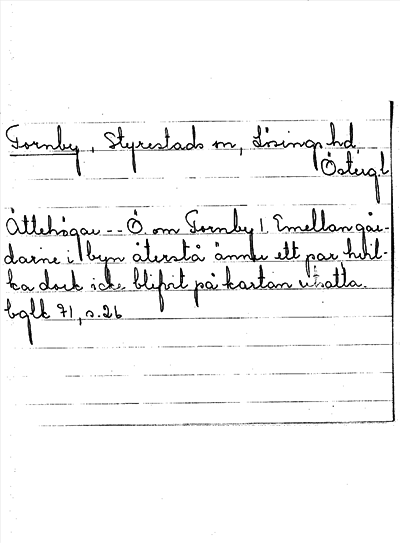 Fornby, Styrestads sn, Lösings hd,
Östergl
Ättehögar -- Ö om Fornby l. Emellan går-
darne i byn återstå ännu ett par, hvil-
ka dock icke blifvit på kartan utsatta.
bglk 71, s. 26